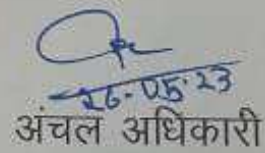 26-05-23
अंचल अधिकारी